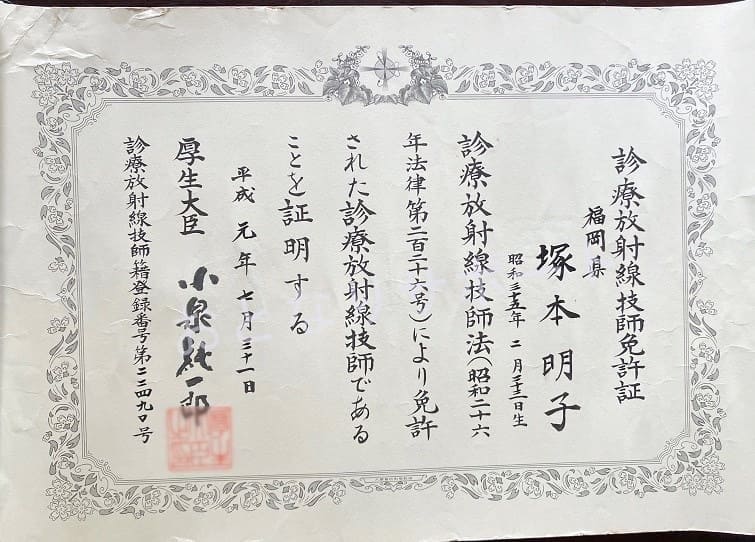 診療放射線技師免許証
福岡県
塚本明子
昭和三五年二月二十三日生
診療放射線技師法（昭和二十六
年法律第二百二十六号）により免許
された診療放射線技師である
ことを証明する
平成元年七月三十一日
厚生大臣 小泉純一郎
診療放射線技師籍登録番号第二三四九〇号